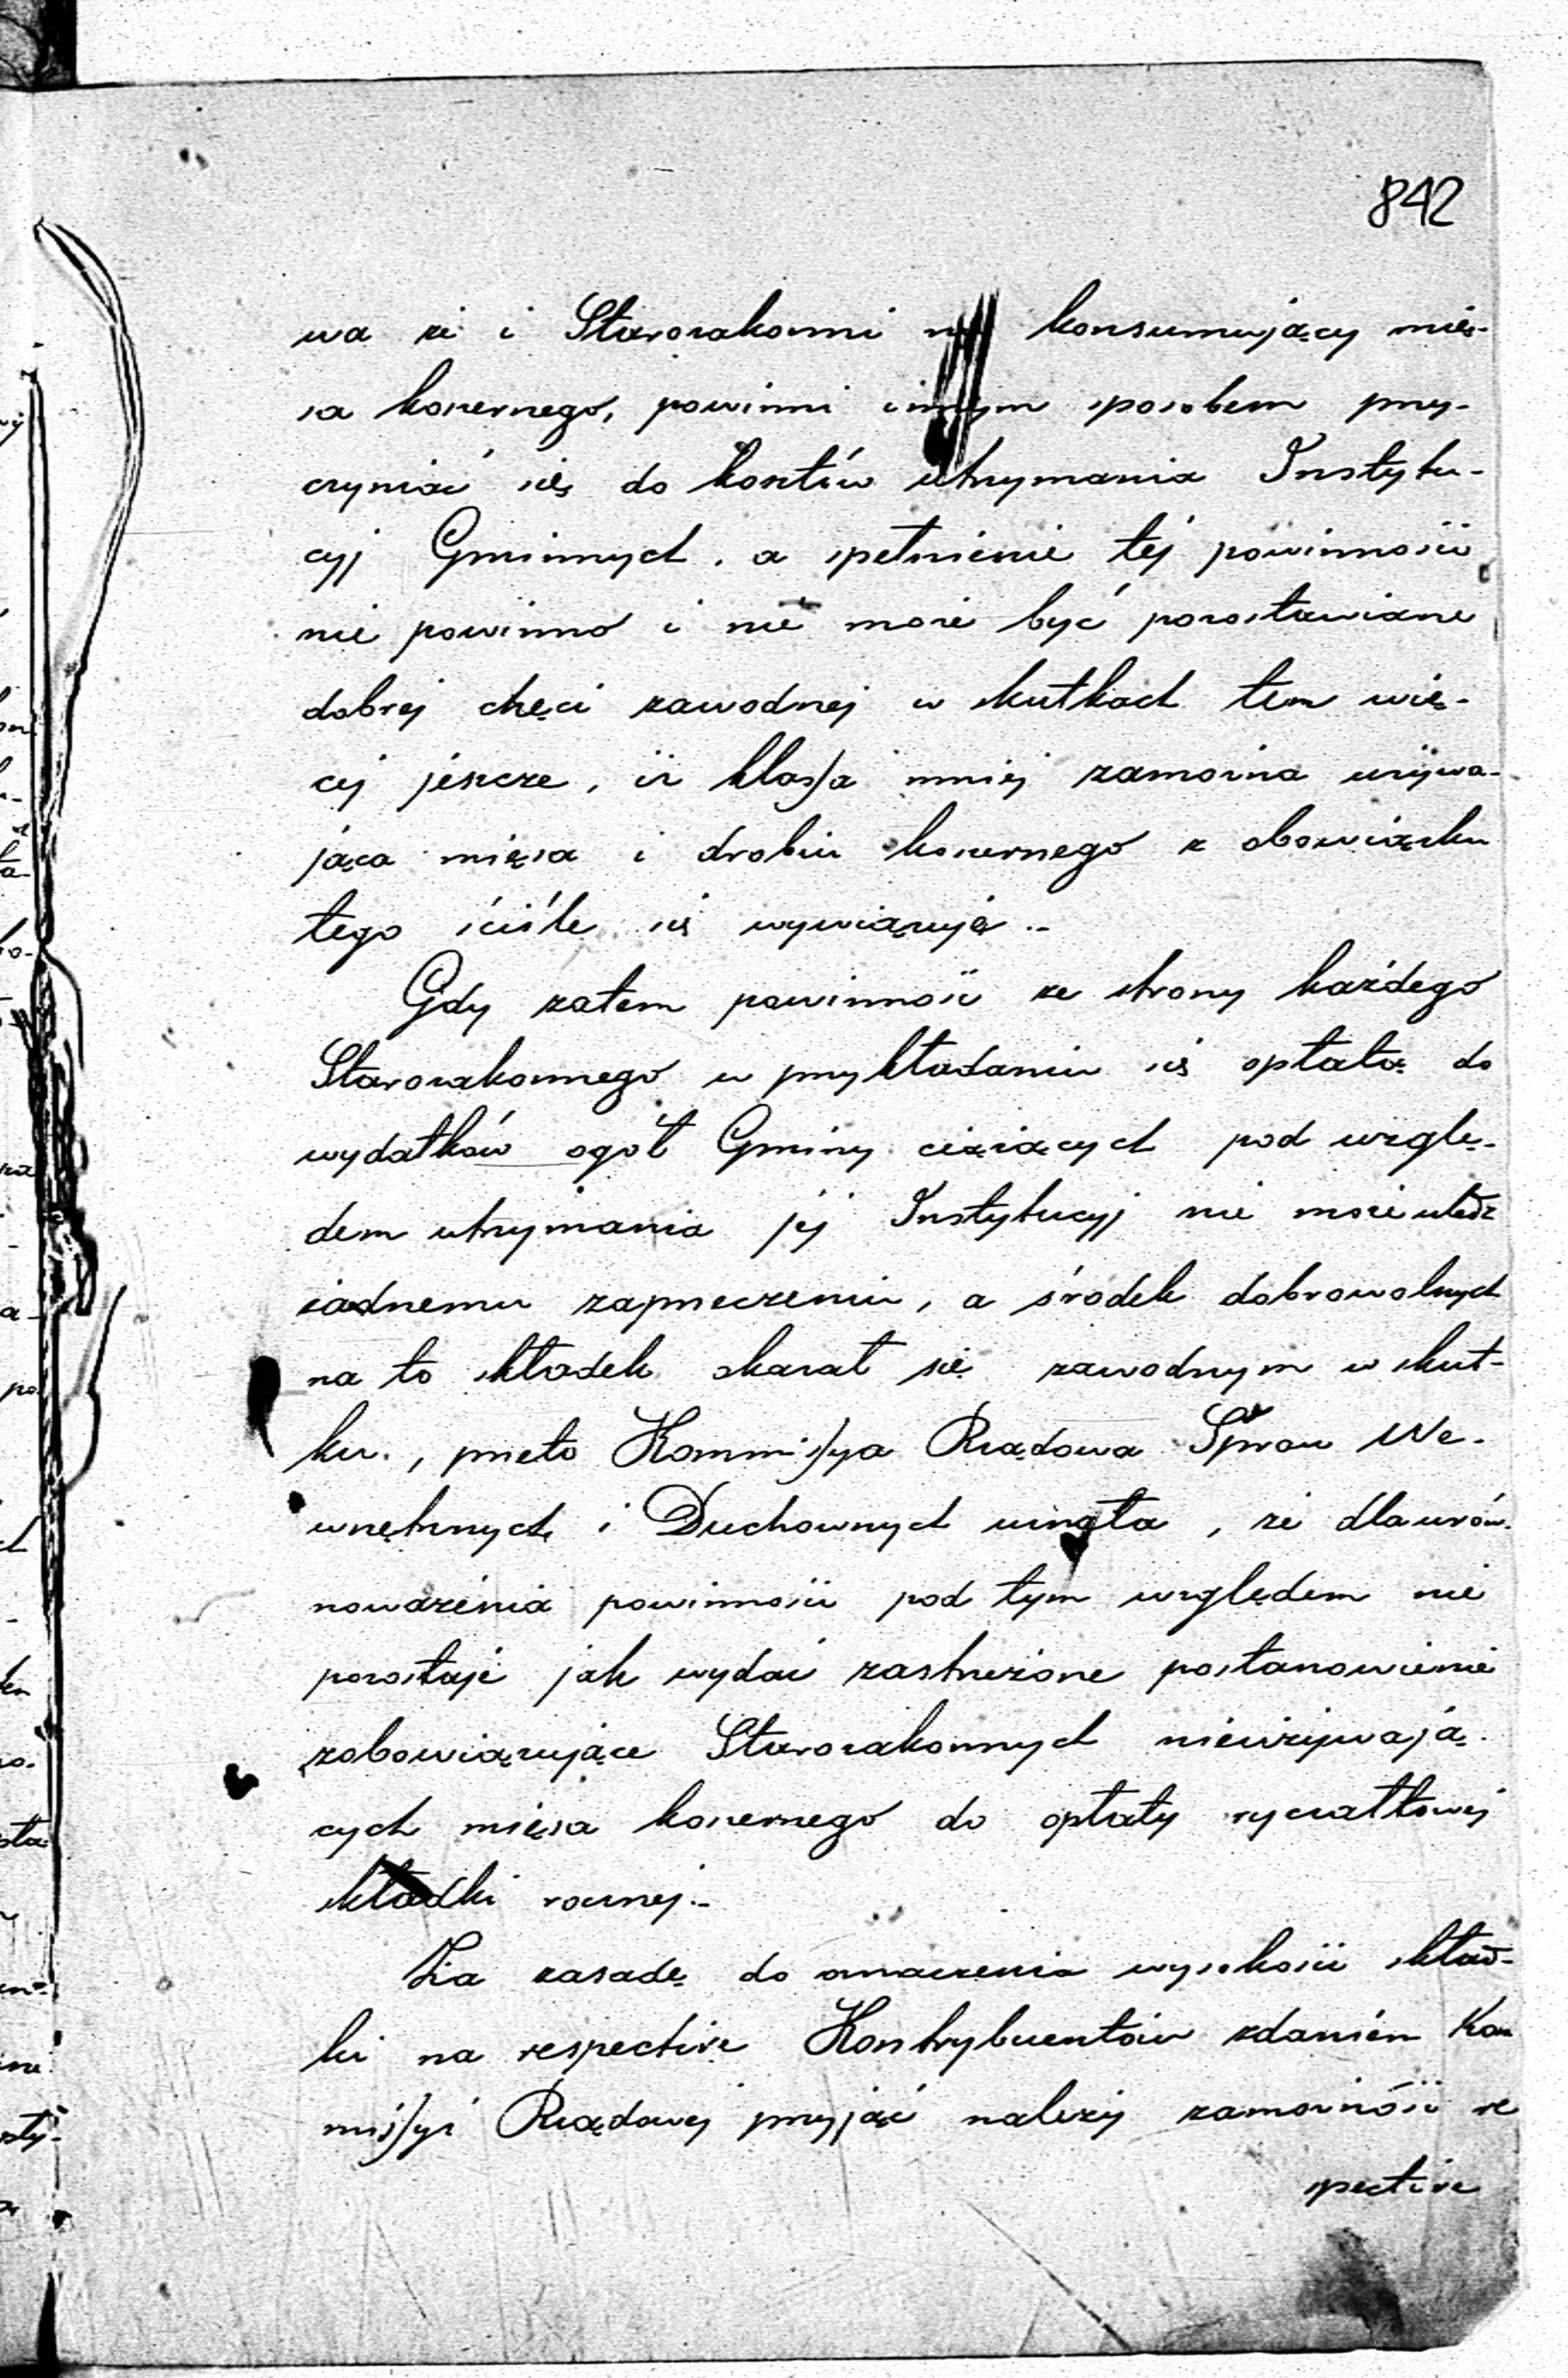 842
wa że i Starozakonni nie konsumujący mię-
sa koszernego, powinni innym sposobem przy-
czyniać się do kosztów utrzymania Instytu-
cyj Gminnych, a spełnienie téj powinności
nie powinno i nie może być pozostawiane
dobrej chęci zawodnej w skutkach tem wię-
cej jeszcze, iż klassa mniej zamożna używa-
jąca mięsa i drobiu koszernego z obowiązku
tego ściśle się wywiązuje.-
Gdy zatem powinność ze strony każdego
Starozakonnego w przykładaniu się opłatą do
wydatków ogół Gminy ciążących pod wzglę-
dem utrzymania jej Instytucyj nie może uledz
żadnemu zaprzeczeniu, a środek dobrowolnych
na to składek okazał się zawodnym w skut-
ku, przeto Kommissya Rządowa Spraw We-
wnętrznych i Duchownych uznała, że dla zrów-
noważenia powinności pod tym względem nie
pozostaje jak wydać zastrzeżone postanowienie
zobowiązujące Starozakonnych nieużywają-
cych mięsa koszernego do opłaty ryczałtowej
składki rocznej.-
Za zasadę do oznaczenia wysokości skład-
ki na respective Kontrybuentów zdaniem Kom
missyi Rządowej przyjąć należy zamożność re
spective